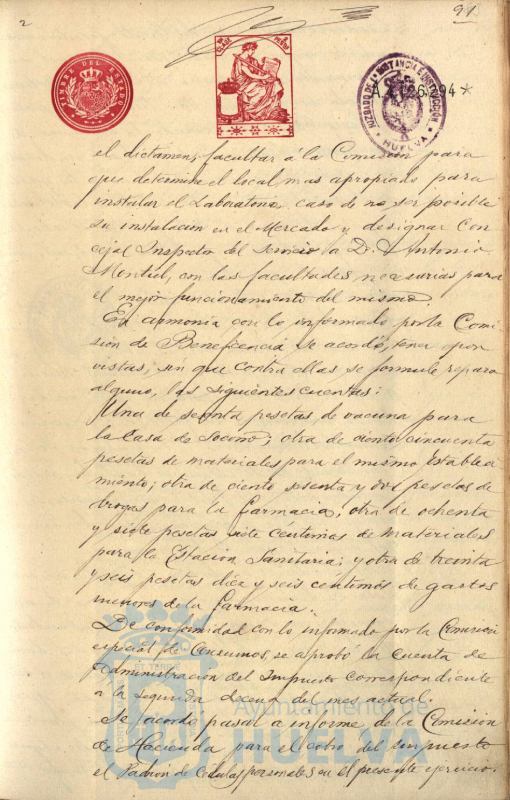 2
91
TIMBRE DEL ESTADO
JUZGADO DE 1ª INSTANCIA E INSTRUCCION
HUELVA
26,294*
el dictamen, facultar á la Comisión para
que determine el local mas apropiado para
instalar el Laboratorio caso de no ser posible
su instalacion en el Mercado y designar Con
cejal Inspector del Servicio á D. Antonio
Montiel, con las facultades necesarias para
el mejor funcionamiento del mismo.
En armonía con lo informado por la Comi
sión de Beneficencia se acordó, tener por
vistas, sin que contra ellas se formule reparo
alguno, las siguientes cuentas:
Una de sesenta pesetas de vacuna para
la Casa de Socorro; otra de ciento cincuenta
pesetas de materiales para el mismo Estableci
miento; otra de ciento sesenta y dos pesetas de
drogas para la farmacia; otra de ochenta
y siete pesetas siete céntimos de materiales
para la Estacion Sanitaria; y otra de treinta
y seis pesetas diez y seis centimos de gastos
menores de la farmacia.
De conformidad con lo informado por la Comisión
especial de Consumos, se aprobó la Cuenta de
Administracion del Impuesto correspondiente
a la segunda decena del mes actual.
Se acordó pasar a informe de la Comision
de Hacienda para el cobro del impuesto
el Padrón de Cédulas personales en el presente ejercicio.
Ayuntamiento de
HUELVA